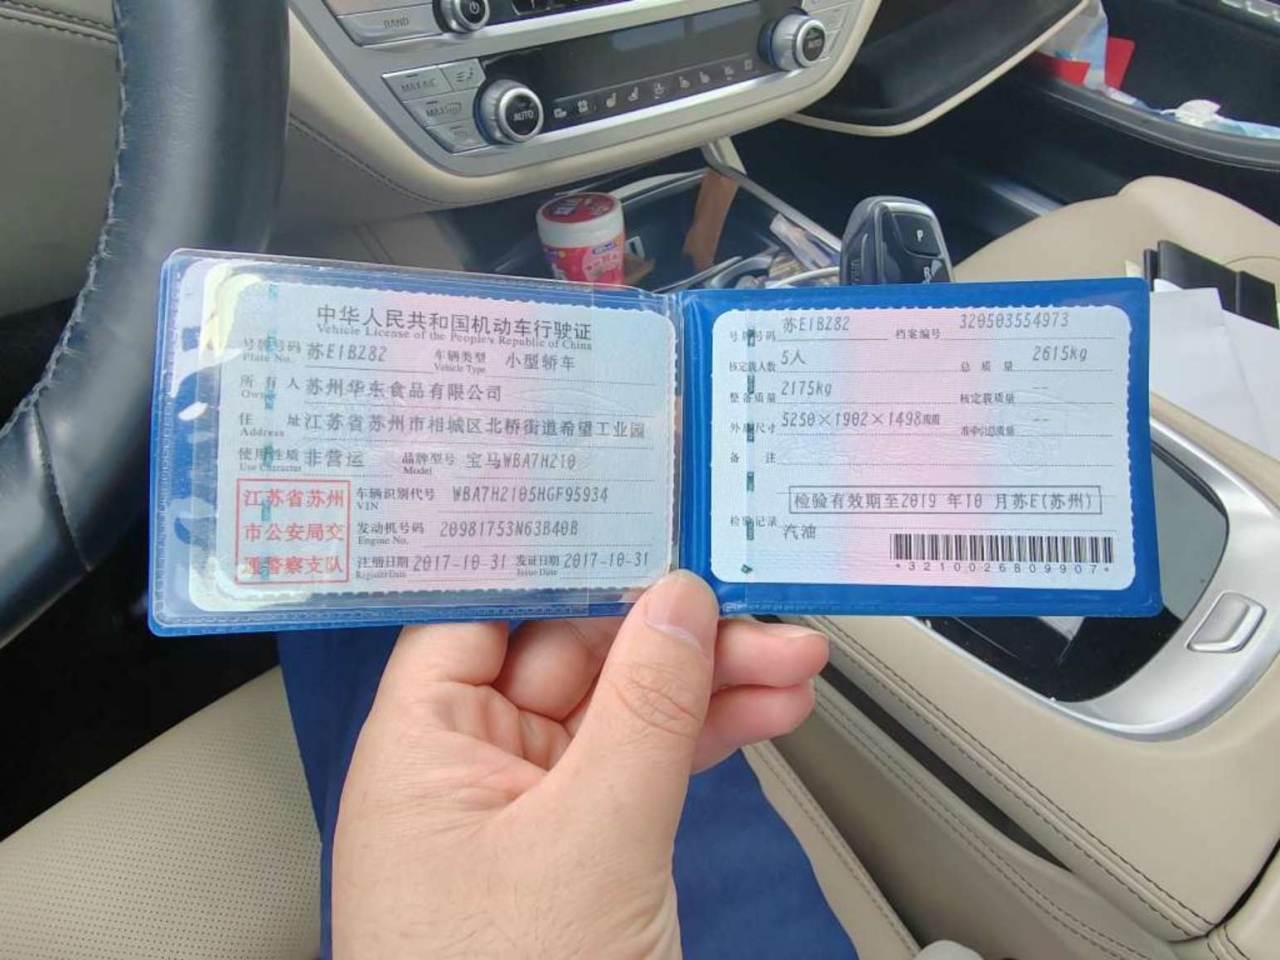 BAND
MAX A/C
AUTO
AUTO
P
R
中华人民共和国机动车行驶证
Vehicle License of the People's Republic of China
号牌号码 苏E1BZ82 车辆类型 小型轿车
Plate No. Vehicle Type
所有人 苏州华东食品有限公司
Owner
住址 江苏省苏州市相城区北桥街道希望工业园
Address
使用性质 非营运 品牌型号 宝马WBA7H210
Use Character Model
江苏省苏州
市公安局交
通警察支队
车辆识别代号 WBA7H2105HGF95934
VIN
发动机号码 20981753N63B40B
Engine No.
注册日期 2017-10-31 发证日期 2017-10-31
Register Date Issue Date
号牌号码 苏E1BZ82 档案编号 320503554973
核定载人数 5人 总质量 2615kg
整备质量 2175kg 核定载质量 --
外廓尺寸 5250×1902×1498mm 准牵引总质量 --
备注
检验有效期至2019年10月苏E(苏州)
检验记录
汽油
*3210026809907*